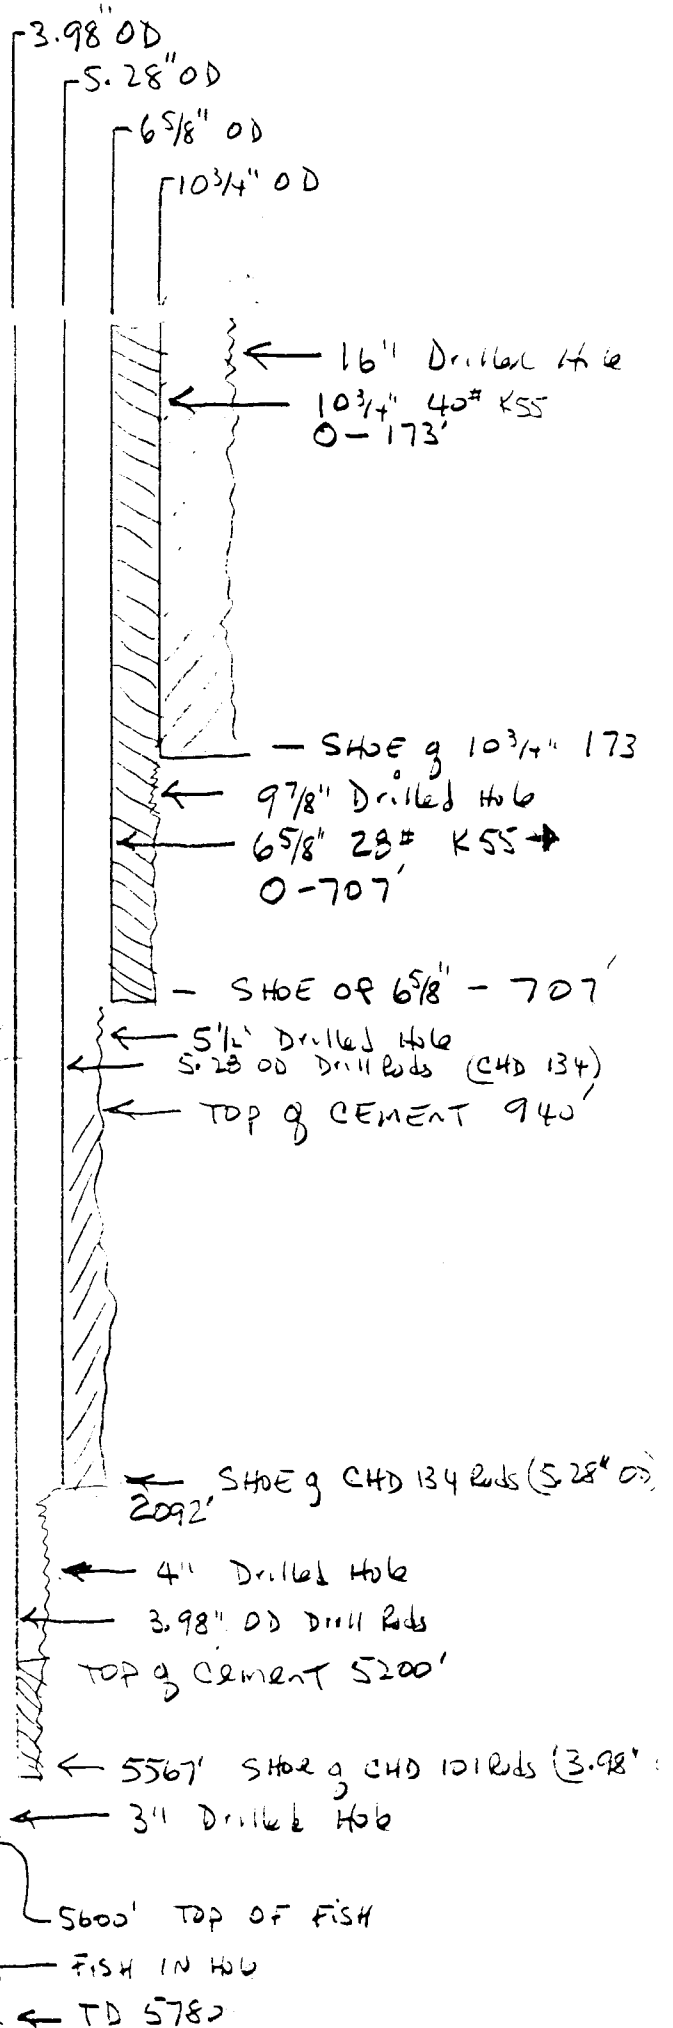 3.98" OD
5.28" OD
6 5/8" OD
10 3/4" OD
16" Drilled Hole
10 3/4" 40# K55
0 - 173'
- SHOE of 10 3/4" 173
9 7/8" Drilled Hole
6 5/8" 28# K55
0-707'
- SHOE OF 6 5/8" - 707'
5 1/2" Drilled Hole
5.28 OD Drill Rods (CHD 134)
TOP of CEMENT 940'
SHOE of CHD 134 Rods (5.28" OD)
2092'
4" Drilled Hole
3.98" OD Drill Rods
TOP of Cement 5200'
5567' SHOE of CHD 101 Rods (3.98"
3" Drilled Hole
5600' TOP OF FISH
FISH IN HOLE
TD 5780